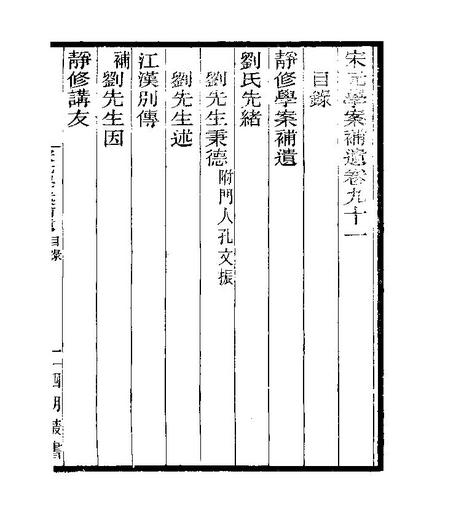 宋元學案補遺卷九十一
目錄
靜修學案補遺
劉氏先緒
劉先生秉德附門人孔文振
劉先生述
江漢別傳
補劉先生因
靜修講友
目錄
四明叢書